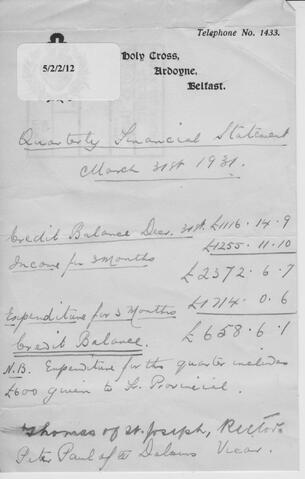 Telephone No. 1433.
Holy Cross,
Ardoyne,
Belfast.
5/2/2/12
Quarterly Financial Statement
March 31st 1931.
Credit Balance Decr. 31st. £1116 . 14 . 9
Income for 3 Months £1255 . 11 . 10
£2372 . 6 . 7
Expenditure for 3 Months £1714 . 0 . 6
Credit Balance. £658 . 6 . 1
N.B. Expenditure for the quarter includes
£600 given to Fr. Provincial.
Thomas of St. Joseph, Rector
Peter Paul of Vicar.